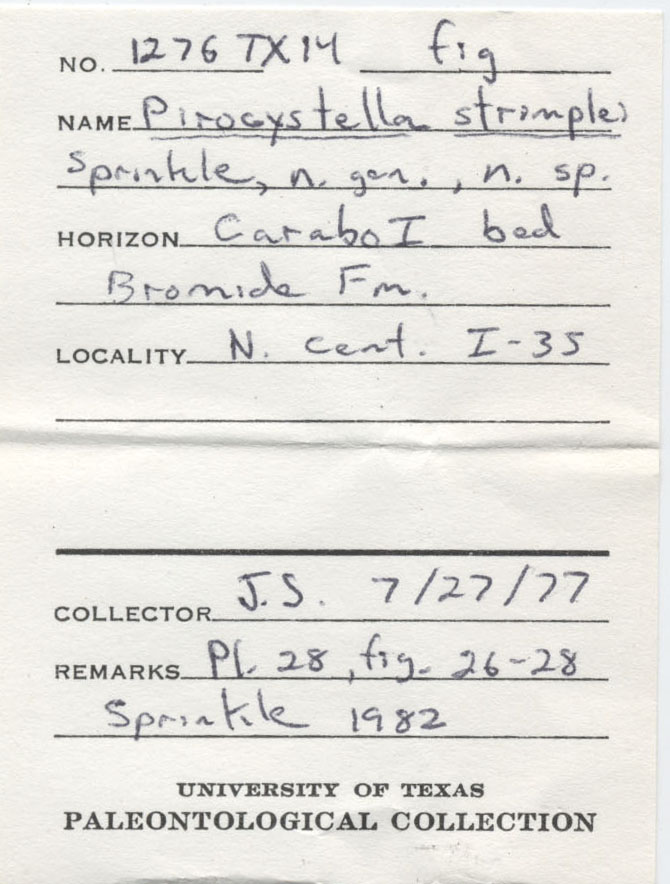 NO. 1276 TX14 fig
NAME Pirocystella strimplei
Sprinkle, n. gen., n. sp.
HORIZON Carabo I bed
Bromide Fm.
LOCALITY N. cent. I-35
COLLECTOR J.S. 7/27/77
REMARKS Pl. 28, fig. 26-28
Sprinkle 1982
UNIVERSITY OF TEXAS
PALEONTOLOGICAL COLLECTION